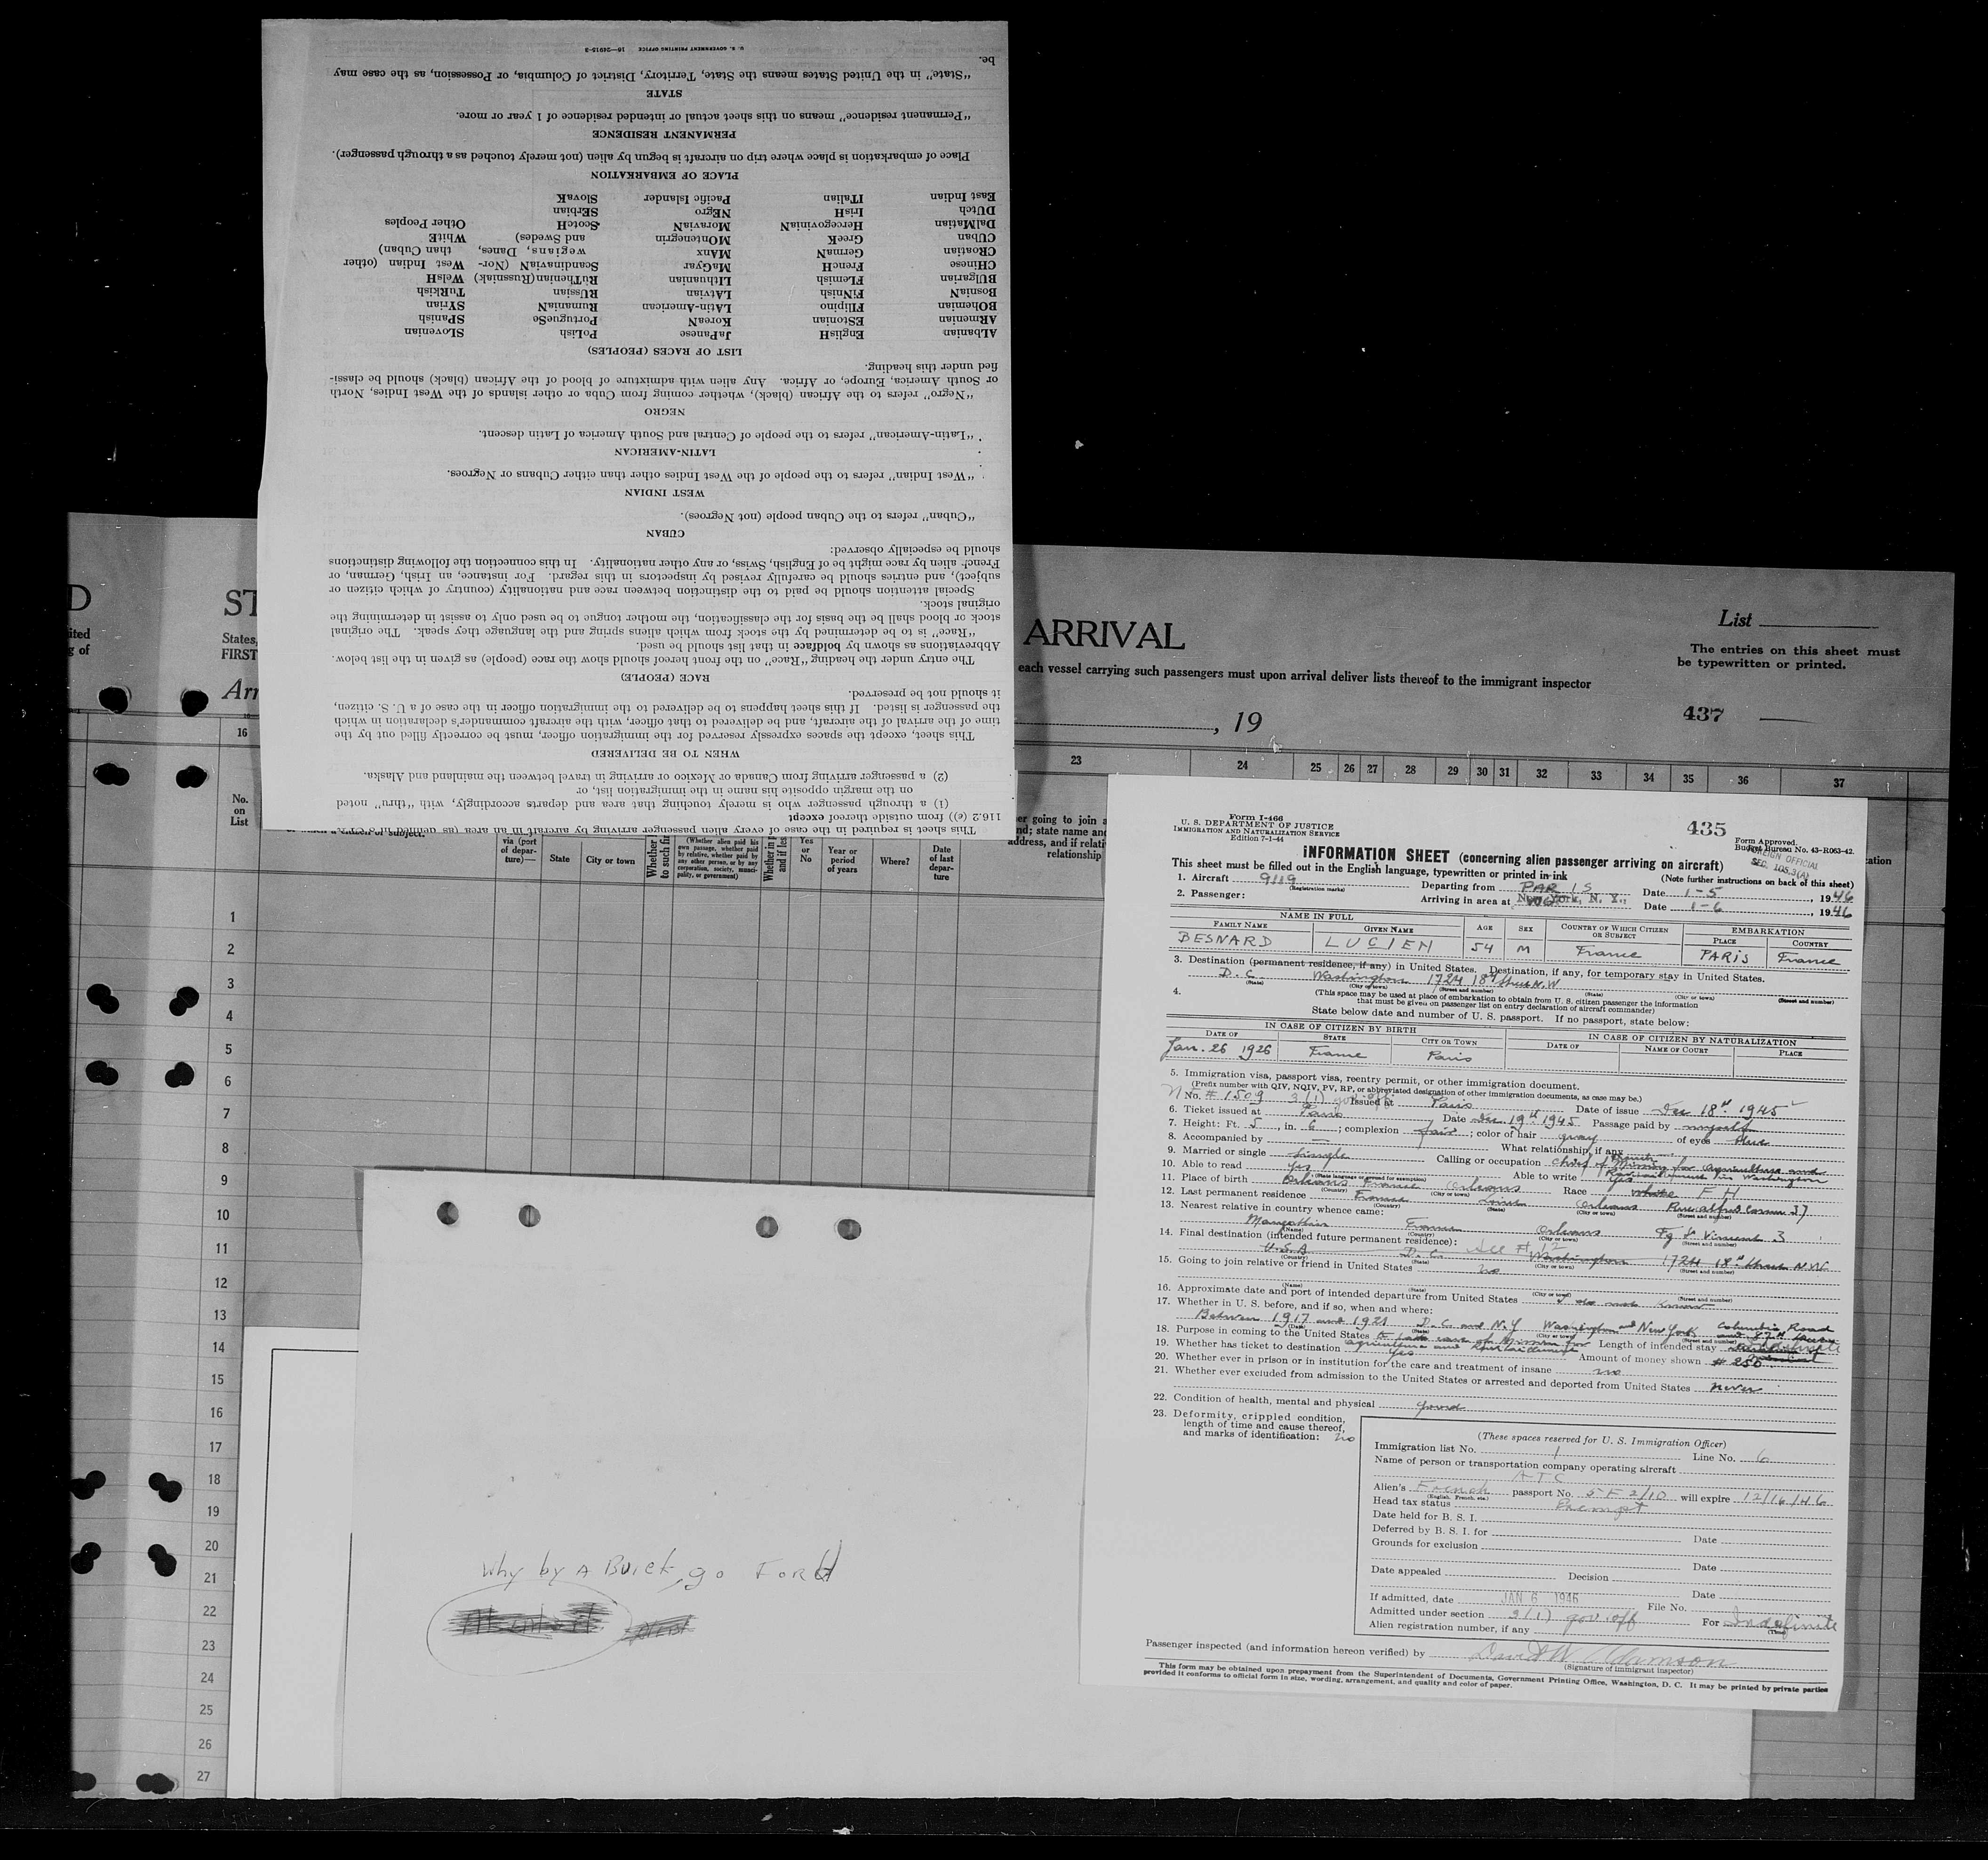 U. S. GOVERNMENT PRINTING OFFICE 16—24915-3
be.
"State" in the United States means the State, Territory, District of Columbia, or Possession, as the case may
STATE
"Permanent residence" means on this sheet actual or intended residence of 1 year or more.
PERMANENT RESIDENCE
Place of embarkation is place where trip on aircraft is begun by alien (not merely touched as a through passenger).
PLACE OF EMBARKATION
East Indian ITalian Pacific Islander SlovaK
DUtch IrisH NEgro SErbian
DalMatian HercegoviniaN MoraviaN ScotcH Other Peoples
CUban GreeK MOntenegrin and Swedes) WhitE
CRoatian GermaN MAnx wegians, Danes, than Cuban)
CHinese FrencH MaGyar ScandinaviaN (Nor- West Indian (other
BUlgarian FLemish LIthuanian RuThenian (Russniak) WelsH
BosniaN FiNnish LAtvian RUssian TuRkish
BOhemian FIlipino LAtin-American RumaniaN SYrian
ARmenian EStonian KoreaN PortugueSe SPanish
ALbanian EnglisH JaPanese PoLish SLovenian
LIST OF RACES (PEOPLES)
fied under this heading.
or South America, Europe, or Africa. Any alien with admixture of blood of the African (black) should be classi-
"Negro" refers to the African (black), whether coming from Cuba or other islands of the West Indies, North
NEGRO
"Latin-American" refers to the people of Central and South America of Latin descent.
LATIN-AMERICAN
"West Indian" refers to the people of the West Indies other than either Cubans or Negroes.
WEST INDIAN
"Cuban" refers to the Cuban people (not Negroes).
CUBAN
should be especially observed:
French alien by race might be of English, Swiss, or any other nationality. In this connection the following distinctions
subject), and entries should be carefully revised by inspectors in this regard. For instance, an Irish, German, or
Special attention should be paid to the distinction between race and nationality (country of which citizen or
original stock.
stock or blood shall be the basis for the classification, the mother tongue to be used only to assist in determining the
"Race" is to be determined by the stock from which aliens spring and the language they speak. The original
Abbreviations as shown by boldface in that list should be used.
The entry under the heading "Race" on the front hereof should show the race (people) as given in the list below.
RACE (PEOPLE)
it should not be preserved.
the passenger is listed. If this sheet happens to be delivered to the immigration officer in the case of a U. S. citizen,
time of the arrival of the aircraft, and be delivered to that officer, with the aircraft commander's declaration in which
This sheet, except the spaces expressly reserved for the immigration officer, must be correctly filled out by the
WHEN TO BE DELIVERED
(2) a passenger arriving from Canada or Mexico or arriving in travel between the mainland and Alaska.
on the margin opposite his name in the immigration list, or
(1) a through passenger who is merely touching that area and departs accordingly, with "thru" noted
116.2 (e)) from outside thereof except
This sheet is required in the case of every alien passenger arriving by aircraft in an area (as defined in 8 CFR
D
ited
g of
ST
States,
FIRST
Arr
ARRIVAL
each vessel carrying such passengers must upon arrival deliver lists thereof to the immigrant inspector
, 19
List
The entries on this sheet must
be typewritten or printed.
437
16 23 24 25 26 27 28 29 30 31 32 33 34 35 36 37
No.
on
List
via (port
of depar-
ture)—
State
City or town
Whether
to such fin
(Whether alien paid his
own passage, whether paid
by relative, whether paid by
any other person, or by any
corporation, society, munici-
pality, or government)
Whether in p
and if les
Yes
or
No
Year or
period
of years
Where?
Date
of last
depar-
ture
er going to join a
nd; state name and
address, and if relati
relationship
1
2
3
4
5
6
7
8
9
10
11
12
13
14
15
16
17
18
19
20
21
22
23
24
25
26
27
Why by A Buick, go Ford
Form I-466
U. S. DEPARTMENT OF JUSTICE
IMMIGRATION AND NATURALIZATION SERVICE
Edition 7-1-44
435
Form Approved.
Budget Bureau No. 43-R063-42.
FOREIGN OFFICIAL
SEC. 105.3(A)
INFORMATION SHEET (concerning alien passenger arriving on aircraft)
This sheet must be filled out in the English language, typewritten or printed in ink (Note further instructions on back of this sheet)
1. Aircraft 9119 (Registration marks) Departing from PARIS Date 1-5, 1946
2. Passenger: Arriving in area at New York, N. Y., Date 1-6, 1946
NAME IN FULL
FAMILY NAME GIVEN NAME AGE SEX COUNTRY OF WHICH CITIZEN OR SUBJECT EMBARKATION PLACE COUNTRY
BESNARD LUCIEN 54 M France PARIS France
3. Destination (permanent residence, if any) in United States. Destination, if any, for temporary stay in United States.
D.C. Washington 1724 18th Street N.W
(State) (City or town) (Street and number) (State) (City or town) (Street and number)
4. (This space may be used at place of embarkation to obtain from U. S. citizen passenger the information
that must be given on passenger list on entry declaration of aircraft commander)
State below date and number of U. S. passport. If no passport, state below:
IN CASE OF CITIZEN BY BIRTH IN CASE OF CITIZEN BY NATURALIZATION
DATE OF STATE CITY OR TOWN DATE OF NAME OF COURT PLACE
Jan. 26 1926 France Paris
5. Immigration visa, passport visa, reentry permit, or other immigration document.
(Prefix number with QIV, NQIV, PV, RP, or abbreviated designation of other immigration documents, as case may be.)
No. # 1509 3(1) gov. off Issued at Paris Date of issue Dec 18th 1945
6. Ticket issued at Paris Date Dec 19th 1945 Passage paid by myself
7. Height: Ft. 5, in. 6; complexion fair; color of hair gray of eyes blue
8. Accompanied by — What relationship, if any
9. Married or single single Calling or occupation chief of French Mission for agriculture and
10. Able to read yes (State language or ground for exemption) Able to write yes Ravitaillement in Washington
11. Place of birth Orleans France Orleans Race white FH
12. Last permanent residence France Loiret Orleans
13. Nearest relative in country whence came:
France Orleans Fg St Vincent 3
14. Final destination (intended future permanent residence): See # 12
U.S.A D.C. Washington 1724 18th Street N.W.
15. Going to join relative or friend in United States no
16. Approximate date and port of intended departure from United States I do not know
17. Whether in U. S. before, and if so, when and where:
Between 1917 and 1921 D.C. and N.Y Washington and New York Columbia Road
18. Purpose in coming to the United States to take care of Mission for Length of intended stay
agriculture and Ravitaillement
19. Whether has ticket to destination yes Amount of money shown # 250
20. Whether ever in prison or in institution for the care and treatment of insane no
21. Whether ever excluded from admission to the United States or arrested and deported from United States never
22. Condition of health, mental and physical good
23. Deformity, crippled condition,
length of time and cause thereof,
and marks of identification: no
(These spaces reserved for U. S. Immigration Officer)
Immigration list No. 1 Line No. 6
Name of person or transportation company operating aircraft
ATC
Alien's French (English, French, etc.) passport No. SF 2/10 will expire 12/16/46
Head tax status Exempt
Date held for B. S. I.
Deferred by B. S. I. for Date
Grounds for exclusion
Date
Date appealed Decision
Date
If admitted, date JAN 6 1946 File No.
Admitted under section 3(1) gov. off For Indefinite (Time)
Alien registration number, if any
Passenger inspected (and information hereon verified) by David W Adamson
(Signature of immigrant inspector)
This form may be obtained upon prepayment from the Superintendent of Documents, Government Printing Office, Washington, D. C. It may be printed by private parties
provided it conforms to official form in size, wording, arrangement, and quality and color of paper.